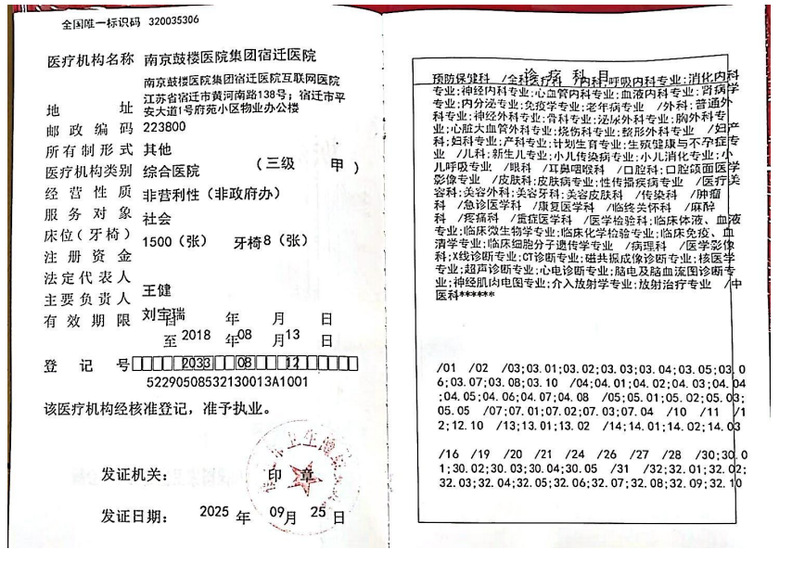 全国唯一标识码 320035306
医疗机构名称 南京鼓楼医院集团宿迁医院
南京鼓楼医院集团宿迁医院互联网医院
江苏省宿迁市黄河南路138号；宿迁市平
地址 安大道1号府苑小区物业办公楼
邮政编码 223800
所有制形式 其他
医疗机构类别 综合医院 （三级 甲）
经营性质 非营利性（非政府办）
服务对象 社会
床位（牙椅） 1500（张） 牙椅8（张）
注册资金
法定代表人
主要负责人 王健
有效期限 刘宝瑞
自 2018 年 08 月 13 日
至 2033 年 08 月 12 日
登记号
52290508532130013A1001
该医疗机构经核准登记，准予执业。
发证机关： 印章
发证日期： 2025 年 09 月 25 日
诊疗科目
预防保健科 /全科医疗科 /内科;呼吸内科专业;消化内科
专业;神经内科专业;心血管内科专业;血液内科专业;肾病学
专业;内分泌专业;免疫学专业;老年病专业 /外科;普通外
科专业;神经外科专业;骨科专业;泌尿外科专业;胸外科专
业;心脏大血管外科专业;烧伤科专业;整形外科专业 /妇产
科;妇科专业;产科专业;计划生育专业;生殖健康与不孕症专
业 /儿科;新生儿专业;小儿传染病专业;小儿消化专业;小
儿呼吸专业 /眼科 /耳鼻咽喉科 /口腔科;口腔颌面医学
影像专业 /皮肤科;皮肤病专业;性传播疾病专业 /医疗美
容科;美容外科;美容牙科;美容皮肤科 /传染科 /肿瘤
科 /急诊医学科 /康复医学科 /临终关怀科 /麻醉
科 /疼痛科 /重症医学科 /医学检验科;临床体液、血液
专业;临床微生物学专业;临床化学检验专业;临床免疫、血
清学专业;临床细胞分子遗传学专业 /病理科 /医学影像
科;X线诊断专业;CT诊断专业;磁共振成像诊断专业;核医学
专业;超声诊断专业;心电诊断专业;脑电及脑血流图诊断专
业;神经肌肉电图专业;介入放射学专业;放射治疗专业 /中
医科******
/01 /02 /03;03.01;03.02;03.03;03.04;03.05;03.0
6;03.07;03.08;03.10 /04;04.01;04.02;04.03;04.04
;04.05;04.06;04.07;04.08 /05;05.01;05.02;05.03;
05.05 /07;07.01;07.02;07.03;07.04 /10 /11 /1
2;12.10 /13;13.01;13.02 /14;14.01;14.02;14.03
/16 /19 /20 /21 /24 /26 /27 /28 /30;30.0
1;30.02;30.03;30.04;30.05 /31 /32;32.01;32.02;
32.03;32.04;32.05;32.06;32.07;32.08;32.09;32.10